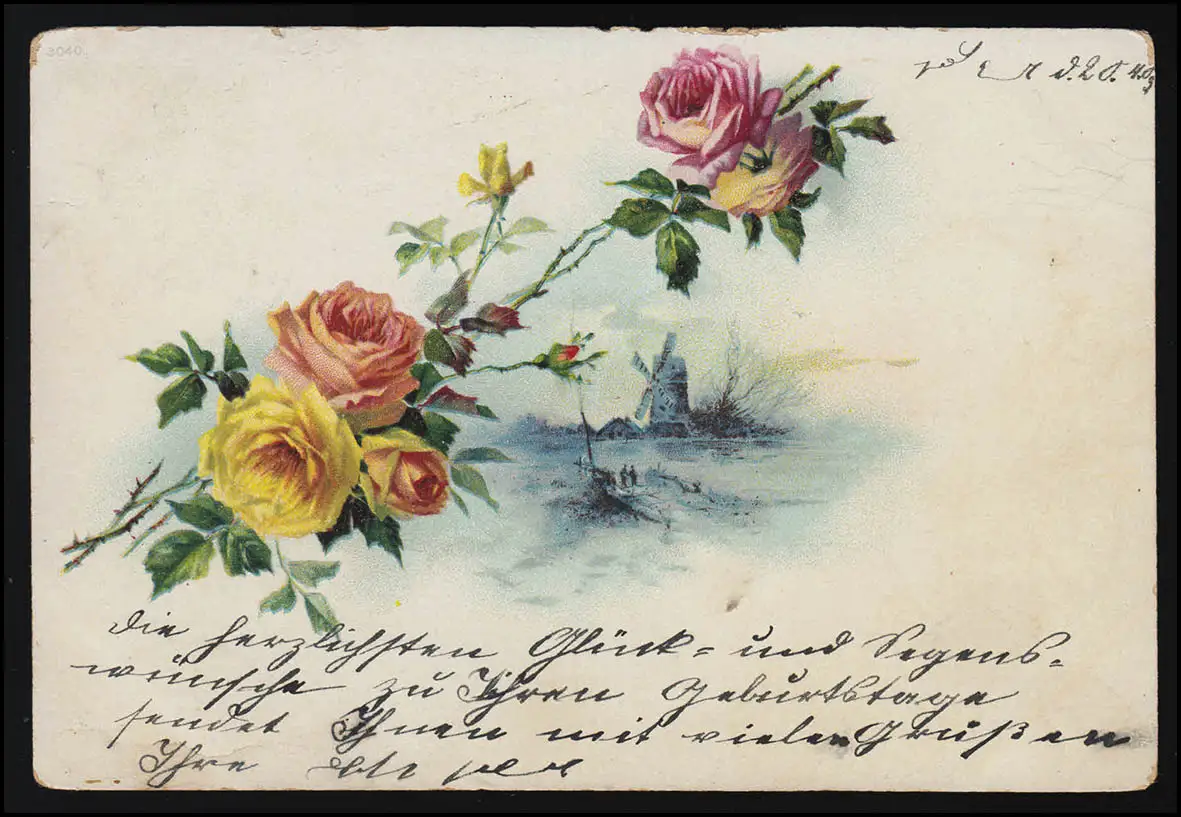 3040.
d. 20. 4. 03
Die herzlichsten Glück= und Segens=
wünsche zu Ihren Geburtstage
sendet Ihnen mit vielen Grüßen
Ihre